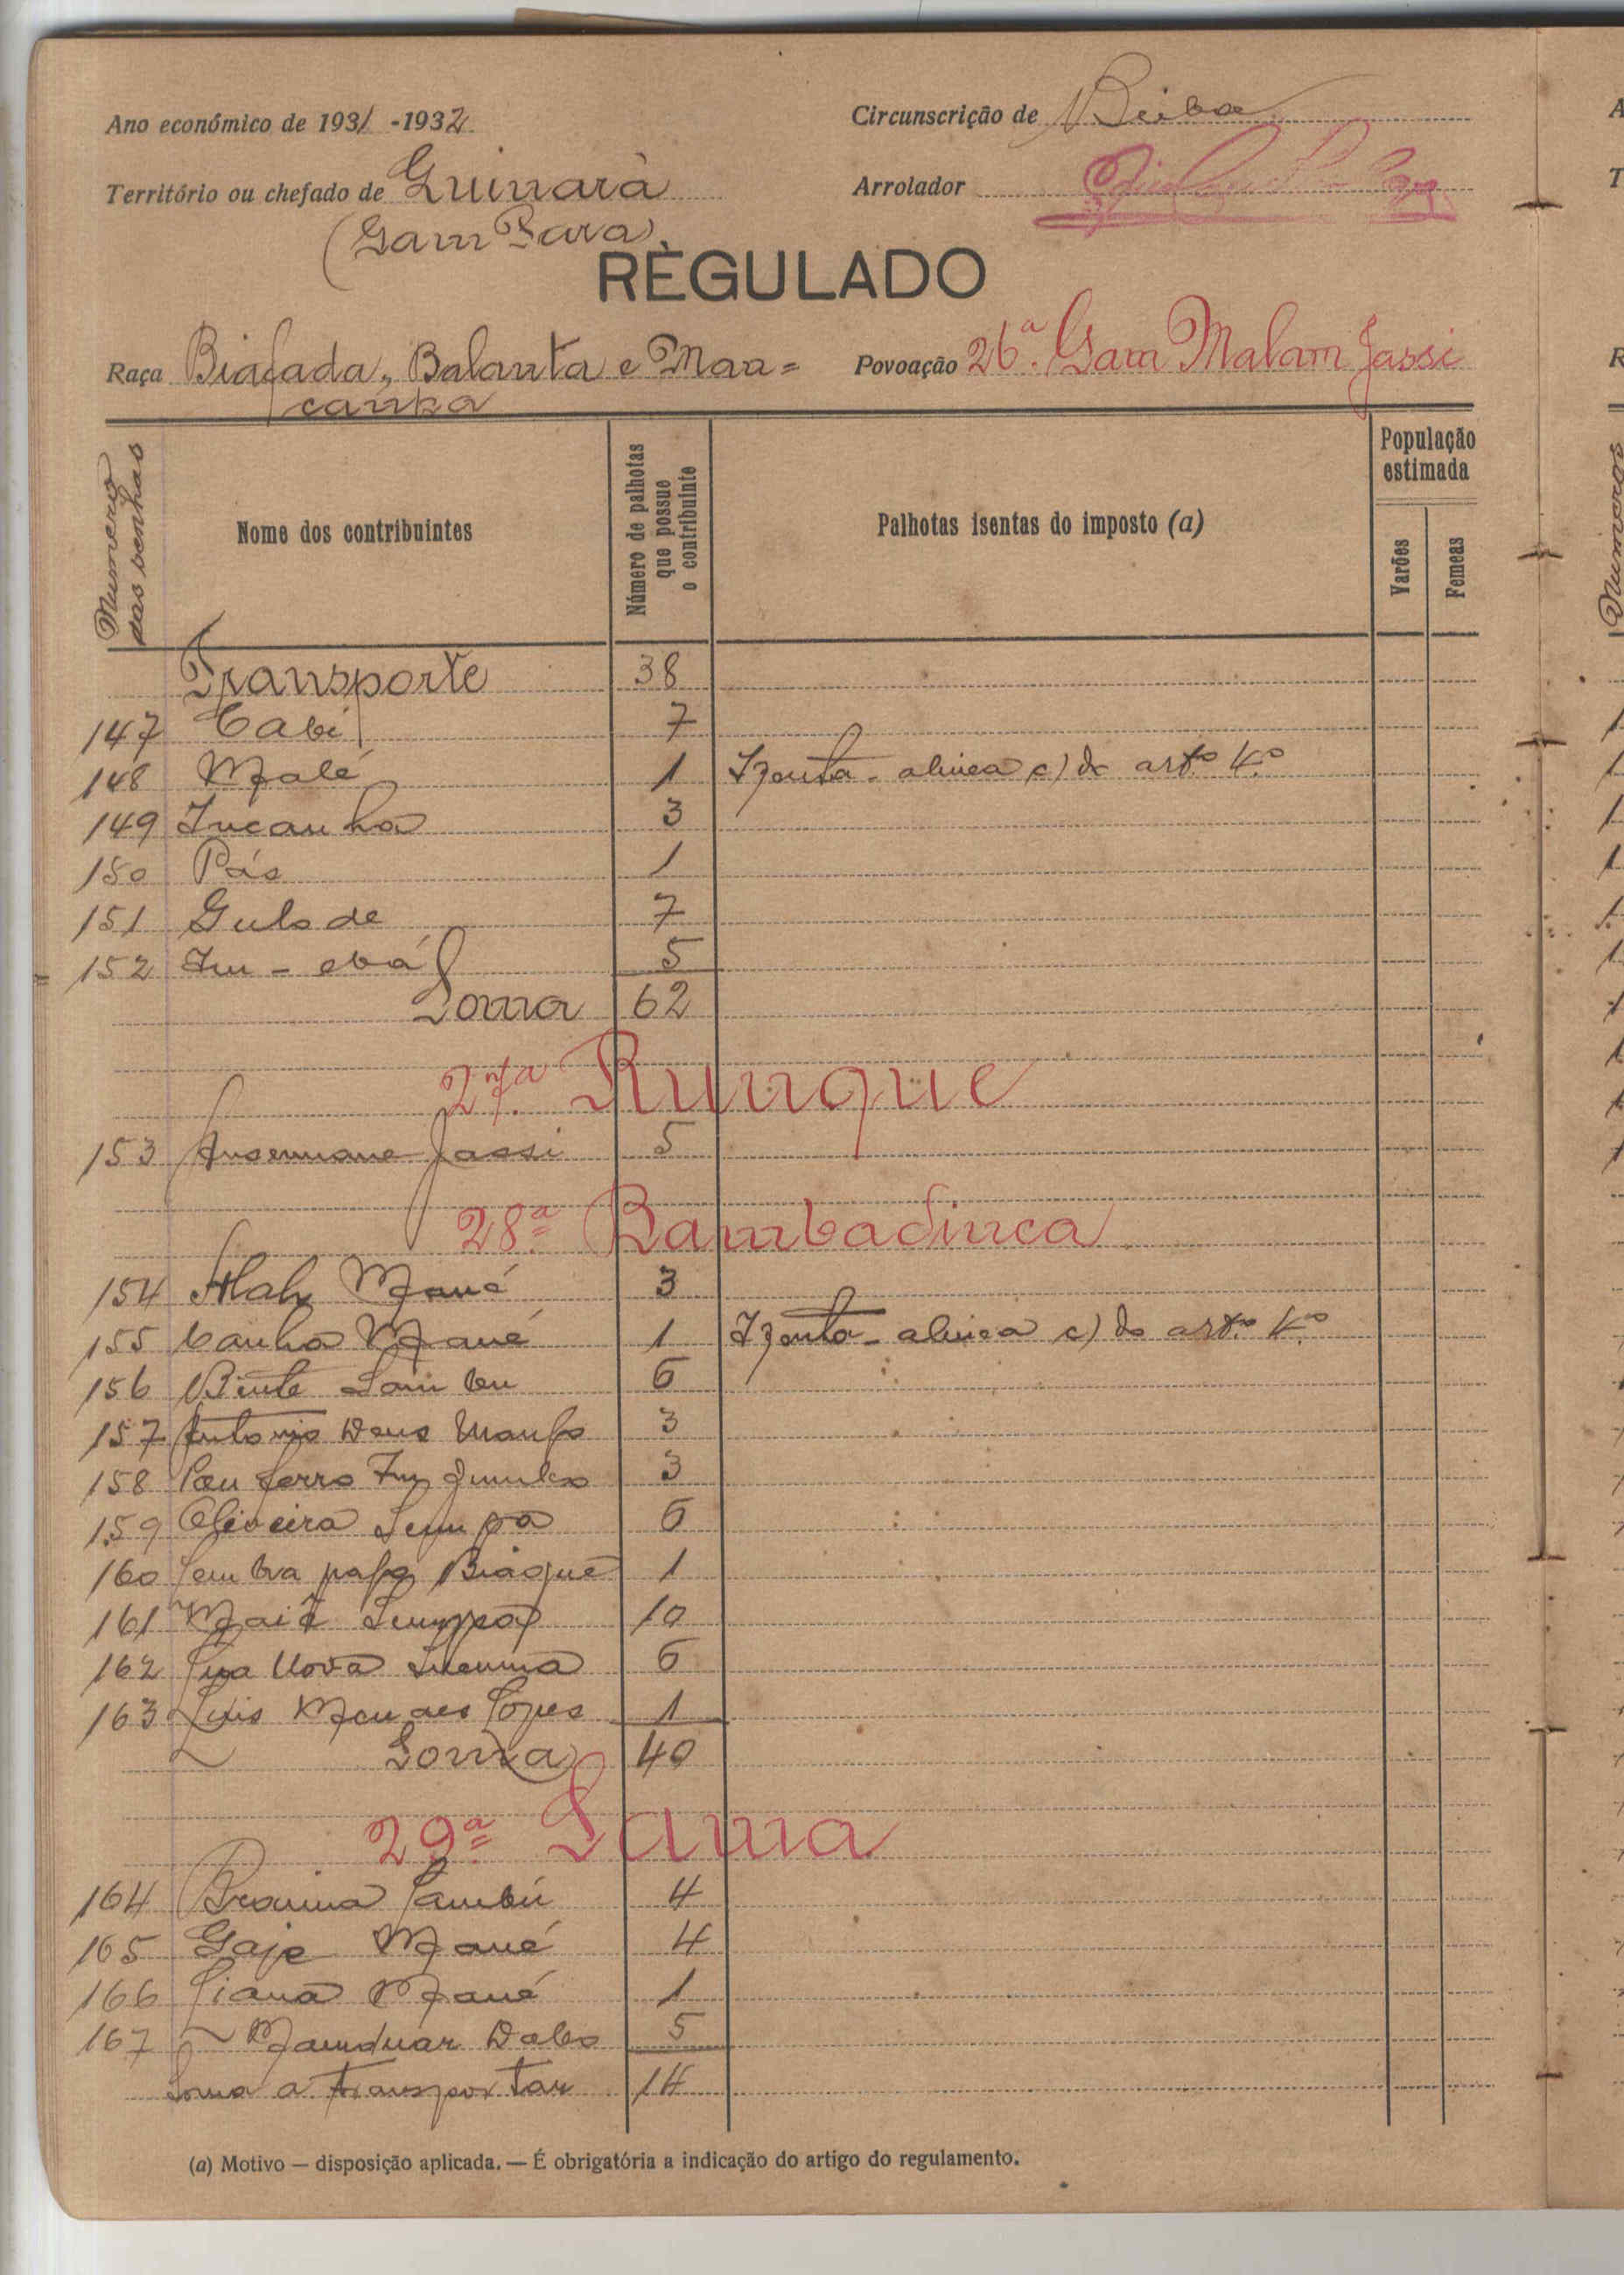 Ano económico de 1931 -1932
Circunscrição de Buba
Território ou chefado de Guinará
Arrolador
(Gam Para)
REGULADO
Raça Biafada, Balanta e Man=
canha
Povoação 26.ª Gam Malam Jassi
Numeros das senhas
Nome dos contribuintes
Número de palhotas que possue o contribuinte
Palhotas isentas do imposto (a)
População estimada
Varões
Femeas
Transporte 38
147 Cabi 7
148 Malé 1 Izenta - alinea c) do artº 4.º
149 Incanha 3
150 Pás 1
151 Gulode 7
152 In - ebá 5
Soma 62
27.ª Runque
153 Ansumane Jassi 5
28.ª Bambadinca
154 Mané 3
155 Canha Mané 1 Izenta - alinea c) do art.º 4.º
156 Binte Sambu 6
157 Antonio Deus 3
158 Pau ferro 3
159 Oliveira 6
160 Sembra Biaguê 1
161 10
162 Lua Nova 6
163 Luis Lopes 1
Soma 40
29.ª Lama
164 Braima Sambú 4
165 Gaje Mané 4
166 Siana Mané 1
167 Mamduar Dabo 5
Soma a transportar 14
(a) Motivo — disposição aplicada. — É obrigatória a indicação do artigo do regulamento.